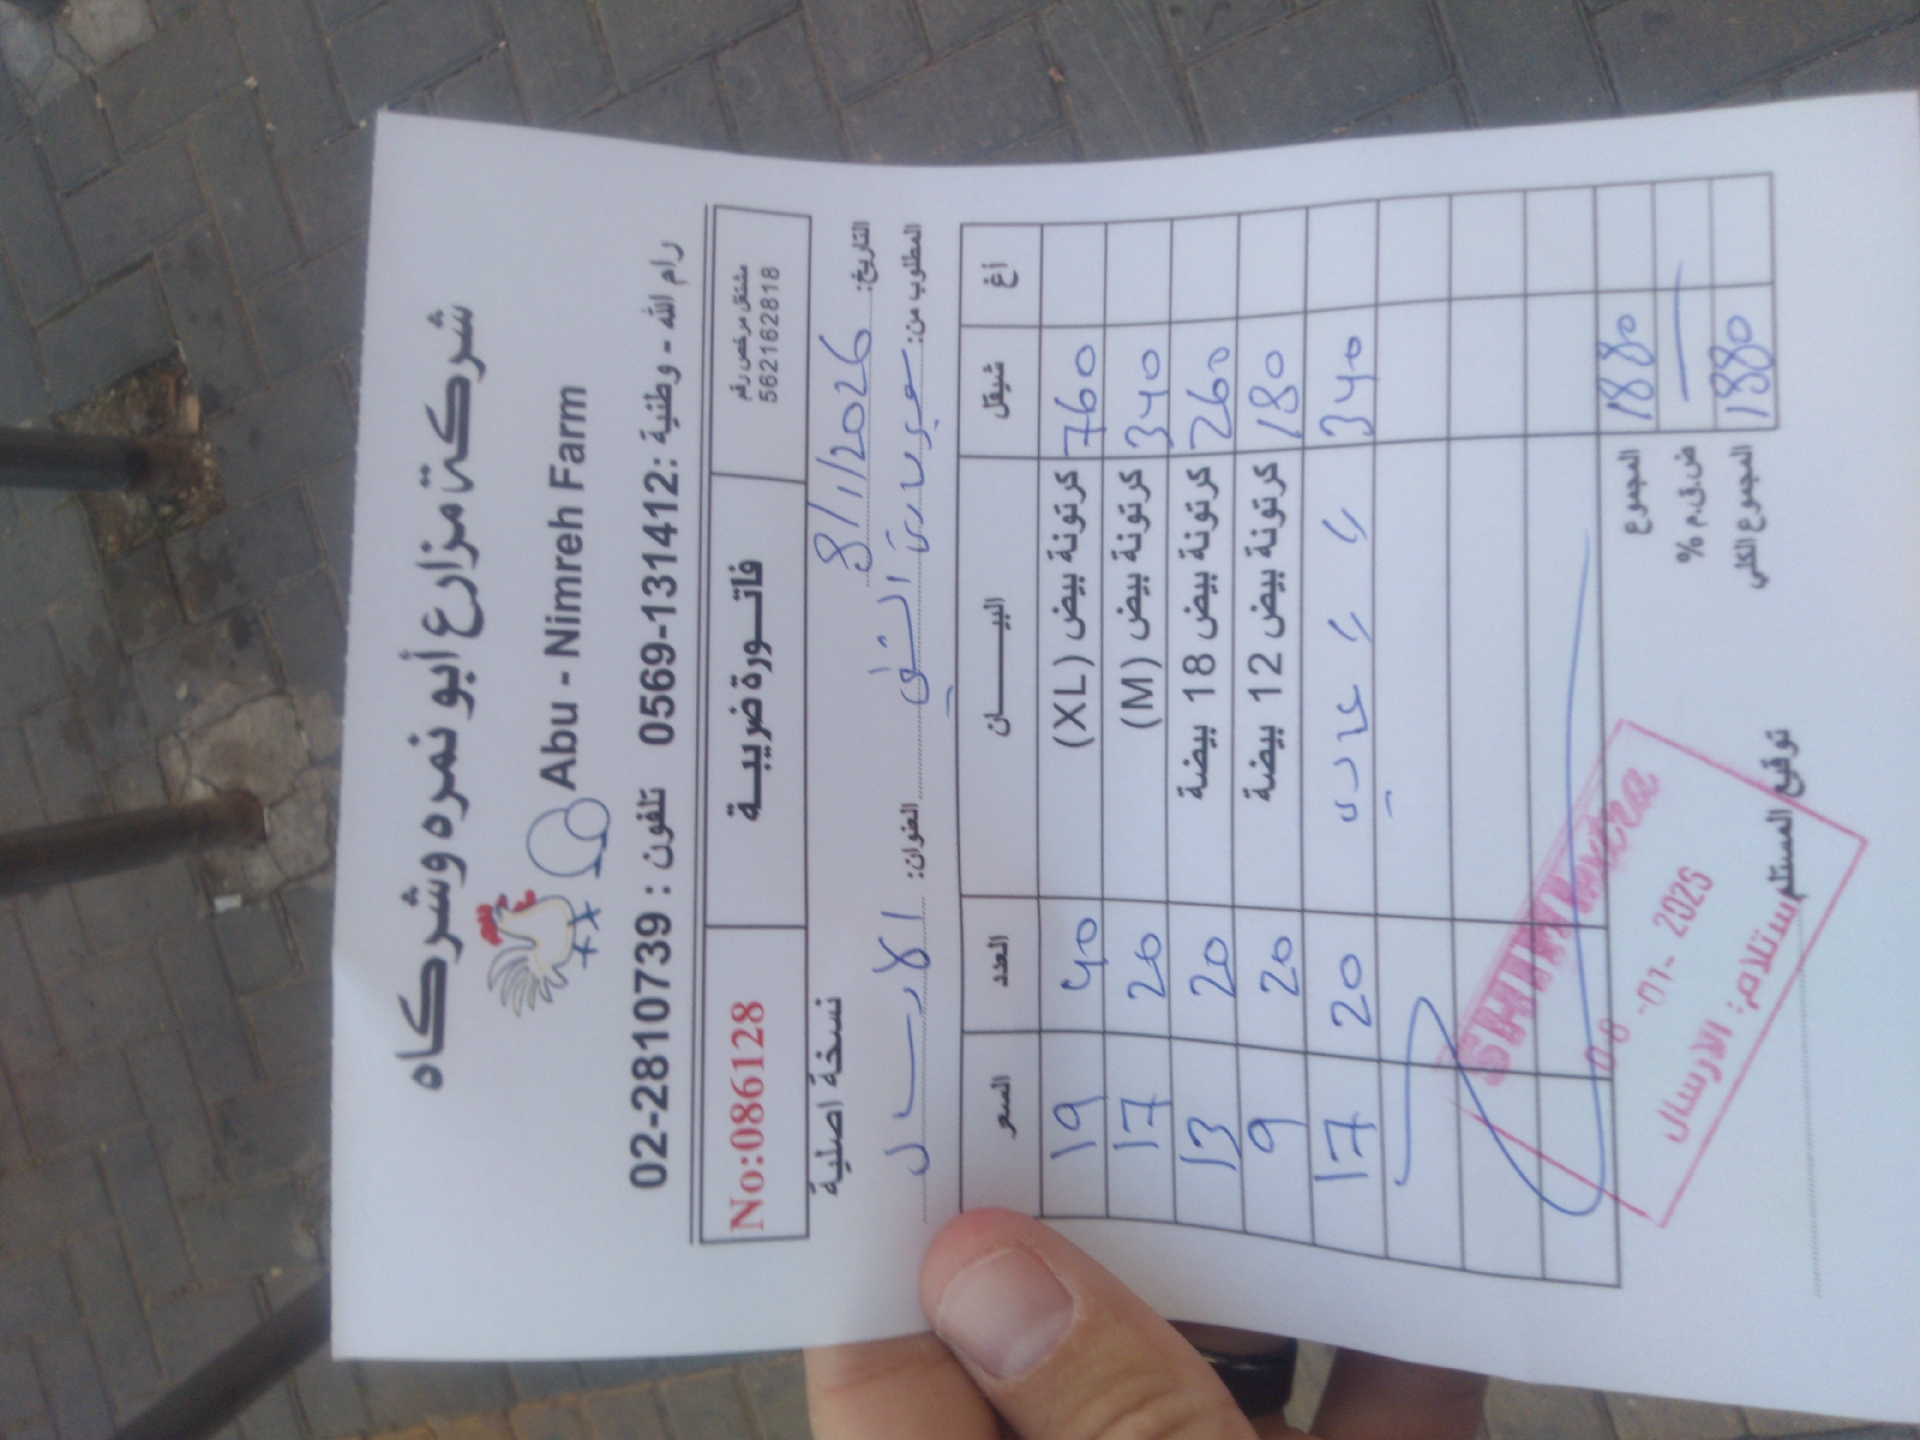 شركة مزارع أبو نمره وشركاه
Abu - Nimreh Farm
رام الله - وطنية : 0569-131412 تلفون : 02-2810739
مشتغل مرخص رقم
562162818
فاتورة ضريبية
No:086128
التاريخ: 8/1/2026
نسخة اصلية
المطلوب من: العنوان: الارسال
أغ شيقل البيان العدد السعر
760 كرتونة بيض (XL) 40 19
340 كرتونة بيض (M) 20 17
260 كرتونة بيض 18 بيضة 20 13
180 كرتونة بيض 12 بيضة 20 9
340 20 17
1880 المجموع
ض.ق.م %
1880 المجموع الكلي
توقيع المستلم
SHINI extra
08 -01- 2026
استلام: الارسال